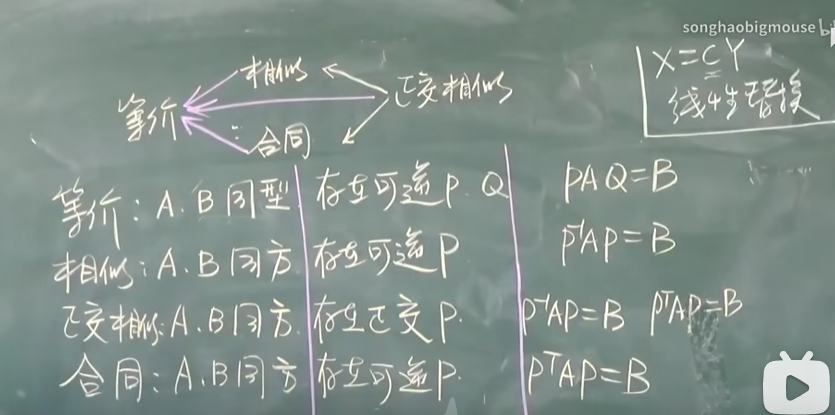 songhaobigmouse
X=CY
线性替换
相似
等价
正交相似
合同
等价:A.B同型 存在可逆P.Q PAQ=B
相似:A.B同方 存在可逆P P⁻¹AP=B
正交相似:A.B同方. 存在正交P. P⁻¹AP=B PᵀAP=B
合同:A.B同方 存在可逆P. PᵀAP=B